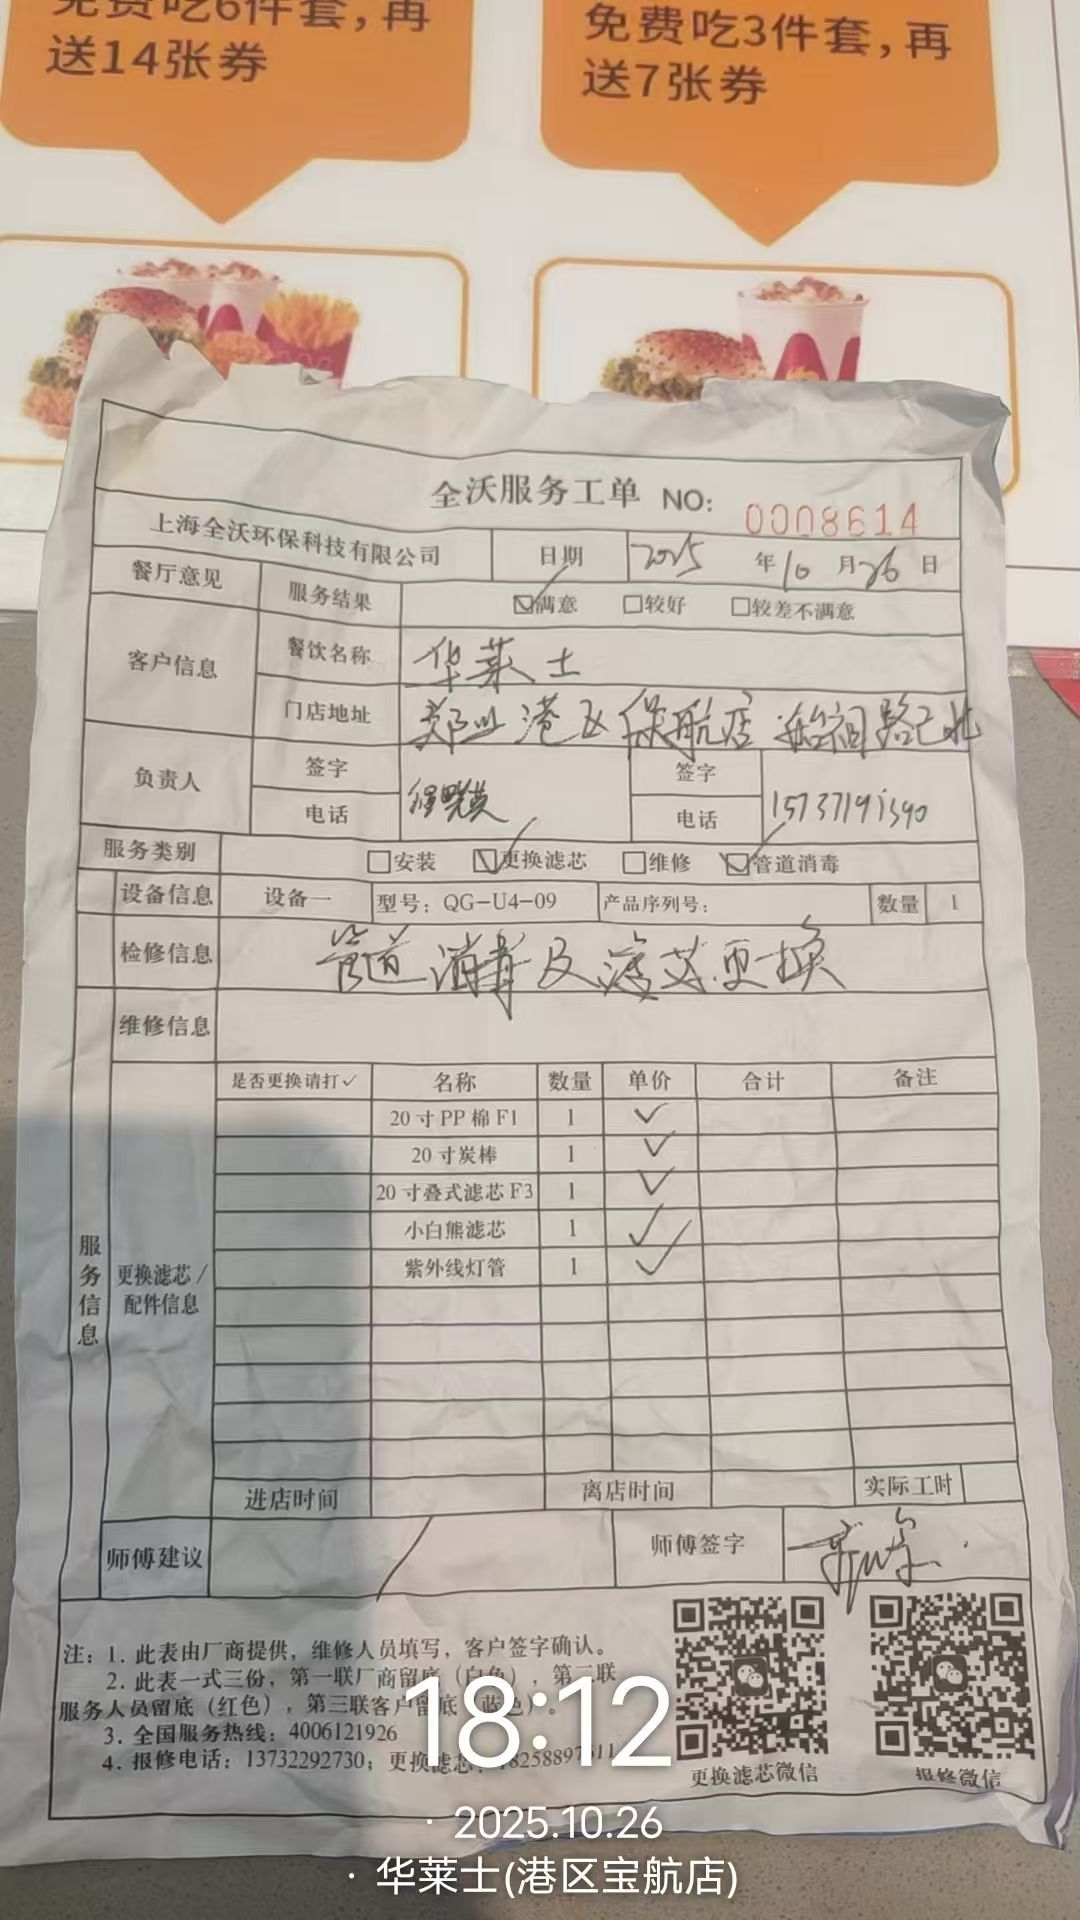 免费吃6件套，再
送14张券
免费吃3件套，再
送7张券
全沃服务工单 NO: 0008614
上海全沃环保科技有限公司 日期 2025 年 10 月 26 日
餐厅意见 服务结果 ☑满意 □较好 □较差不满意
客户信息 餐饮名称 华莱士
门店地址 郑州港区保航店 始祖路已北
负责人 签字 签字
电话 电话 15737191390
服务类别 □安装 ☑更换滤芯 □维修 ☑管道消毒
设备信息 设备一 型号：QG-U4-09 产品序列号： 数量 1
检修信息 管道消毒及滤芯更换
维修信息
服务信息
更换滤芯/
配件信息
是否更换请打✓ 名称 数量 单价 合计 备注
20寸PP棉F1 1 ✓
20寸炭棒 1 ✓
20寸叠式滤芯F3 1 ✓
小白熊滤芯 1 ✓
紫外线灯管 1 ✓
进店时间 离店时间 实际工时
师傅建议 / 师傅签字
注：1. 此表由厂商提供，维修人员填写，客户签字确认。
2. 此表一式三份，第一联厂商留底（白色），第二联
服务人员留底（红色），第三联客户留底（蓝色）。
3. 全国服务热线：4006121926
4. 报修电话：13732292730；更换滤芯：
更换滤芯微信 报修微信
18:12
· 2025.10.26
· 华莱士(港区宝航店)